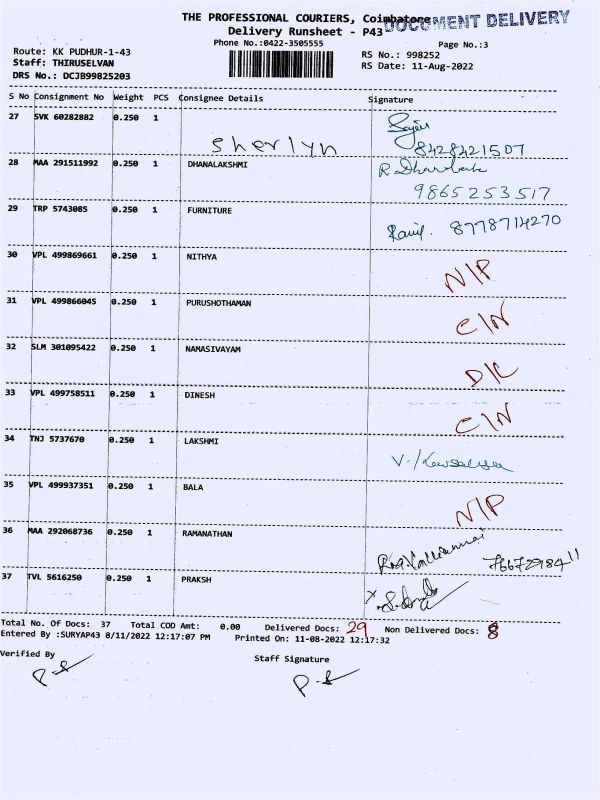 THE PROFESSIONAL COURIERS, Coimbatore
DOCUMENT DELIVERY
Delivery Runsheet - P43
Phone No.:0422-3505555
Page No.:3
Route: KK PUDHUR-1-43
RS No.: 998252
Staff: THIRUSELVAN
RS Date: 11-Aug-2022
DRS No.: DCJB99825203
S No Consignment No Weight PCS Consignee Details Signature
27 SVK 60282882 0.250 1
Sherlyn
8428421507
28 MAA 291511992 0.250 1 DHANALAKSHMI
9865253517
29 TRP 5743085 0.250 1 FURNITURE
8778714270
30 VPL 499869661 0.250 1 NITHYA
N/P
31 VPL 499866045 0.250 1 PURUSHOTHAMAN
C/N
32 SLM 301095422 0.250 1 NAMASIVAYAM
D/C
33 VPL 499758511 0.250 1 DINESH
C/N
34 TNJ 5737670 0.250 1 LAKSHMI
35 VPL 499937351 0.250 1 BALA
N/P
36 MAA 292068736 0.250 1 RAMANATHAN
37 TVL 5616250 0.250 1 PRAKSH
Total No. Of Docs: 37 Total COD Amt: 0.00 Delivered Docs: 29 Non Delivered Docs: 8
Entered By :SURYAP43 8/11/2022 12:17:07 PM Printed On: 11-08-2022 12:17:32
Verified By Staff Signature